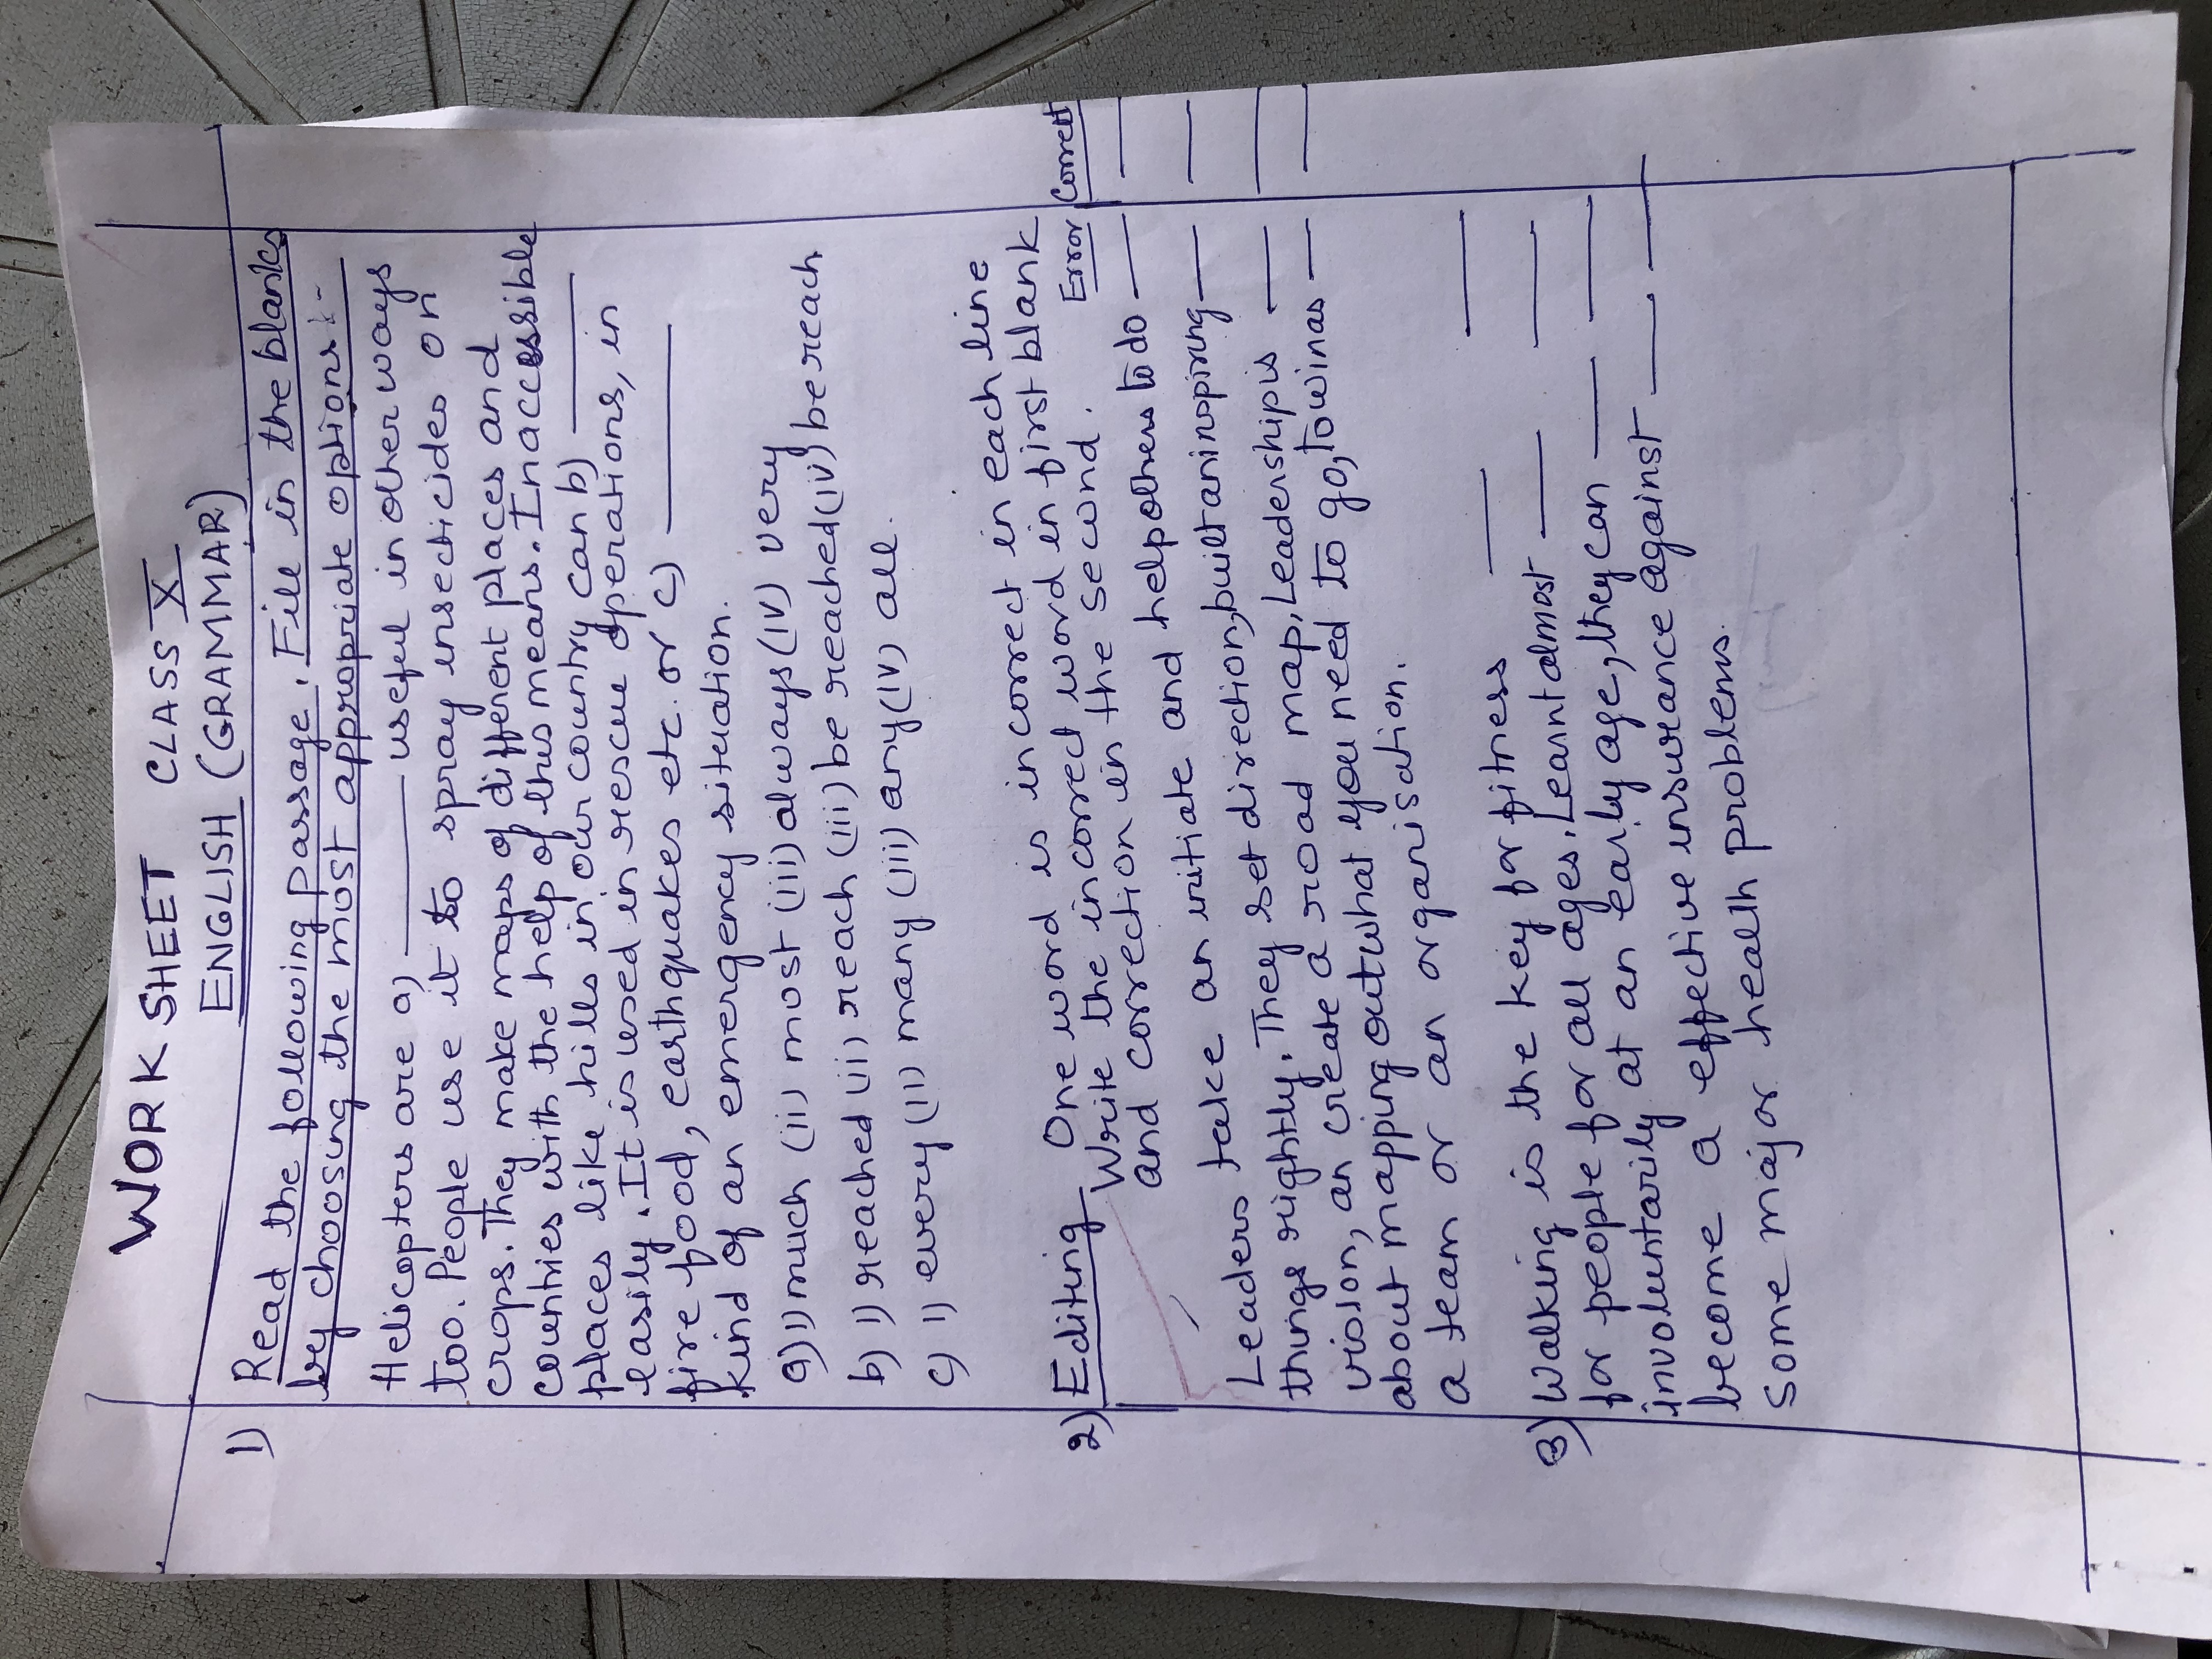 WORK SHEET CLASS X
ENGLISH (GRAMMAR)
1) Read the following passage. Fill in the blanks
by choosing the most appropriate options:-
Helicopters are a) ______ useful in other ways
too. People use it to spray insecticides on
crops. They make maps of different places and
countries with the help of this means. Inaccessible
places like hills in our country can b) ______
easily. It is used in rescue operations, in
fire food, earthquakes etc. or c) ______
kind of an emergency situation.
a) i) much (ii) most (iii) always (iv) very
b) i) reached (ii) reach (iii) be reached (iv) be reach
c) i) every (ii) many (iii) any (iv) all.
2) Editing One word is incorrect in each line
Write the incorrect word in first blank
and correction in the second.
Error Correct
Leaders take an initiate and help others to do ___ ___
things rightly. They set direction, built an inspiring ___ ___
vision, an create a road map, Leadership is ___ ___
about mapping out what you need to go, to win as ___ ___
a team or an organisation.
3) Walking is the key for fitness ___ ___
for people for all ages. Learnt almost ___ ___
involuntarily at an early age, they can ___ ___
become a effective insurance against ___ ___
some major health problems.